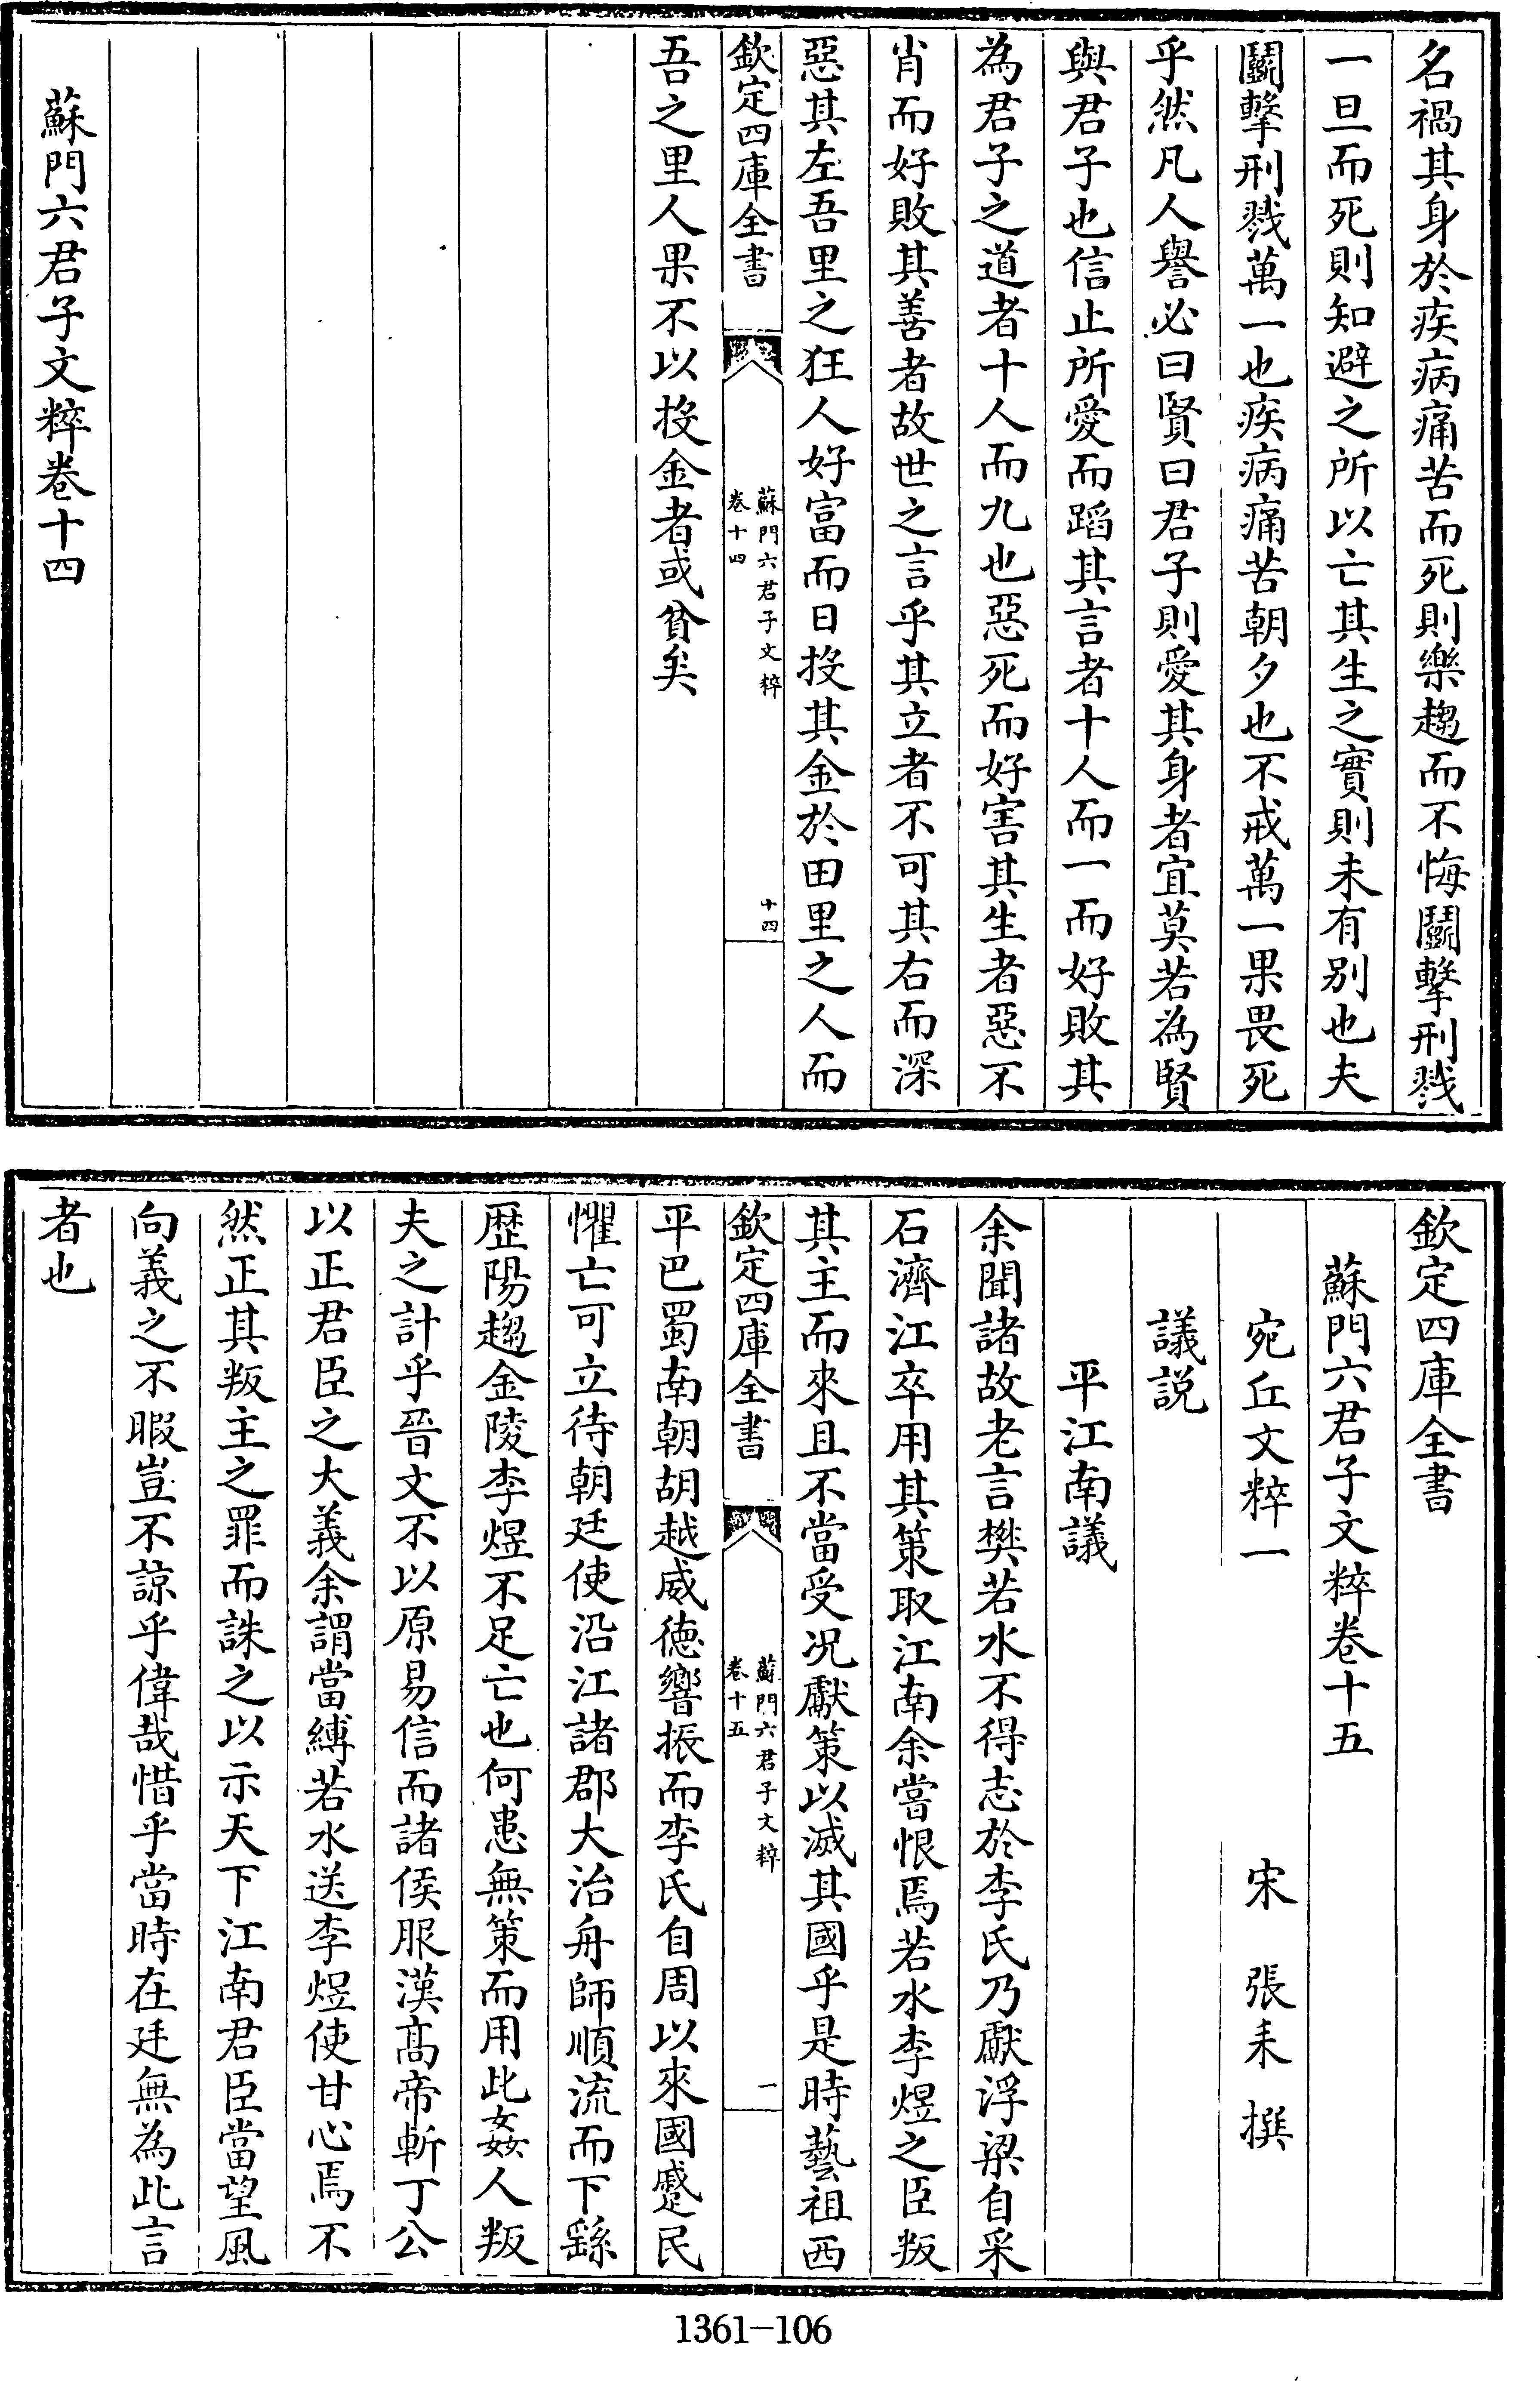 名禍其身於疾病痛苦而死則樂趨而不悔鬭擊刑戮
一旦而死則知避之所以亡其生之實則未有别也夫
鬭擊刑戮萬一也疾病痛苦朝夕也不戒萬一果畏死
乎然凡人譽必曰賢曰君子則愛其身者宜莫若為賢
與君子也信止所愛而蹈其言者十人而一而好敗其
為君子之道者十人而九也惡死而好害其生者惡不
肖而好敗其善者故世之言乎其立者不可其右而深
惡其左吾里之狂人好富而日投其金於田里之人而
欽定四庫全書
蘇門六君子文粹
卷十四
十四
吾之里人果不以投金者或貧矣
蘇門六君子文粹卷十四
欽定四庫全書
蘇門六君子文粹卷十五
宛丘文粹一 宋 張耒 撰
議説
平江南議
余聞諸故老言樊若水不得志於李氏乃獻浮梁自采
石濟江卒用其策取江南余嘗恨焉若水李煜之臣叛
其主而來且不當受况獻策以滅其國乎是時藝祖西
欽定四庫全書
蘇門六君子文粹
卷十五
一
平巴蜀南朝胡越威徳響振而李氏自周以來國蹙民
懼亡可立待朝廷使沿江諸郡大治舟師順流而下繇
歴陽趨金陵李煜不足亡也何患無策而用此姦人叛
夫之計乎晉文不以原易信而諸侯服漢髙帝斬丁公
以正君臣之大義余謂當縛若水送李煜使甘心焉不
然正其叛主之罪而誅之以示天下江南君臣當望風
向義之不暇豈不諒乎偉哉惜乎當時在廷無為此言
者也
1361-106